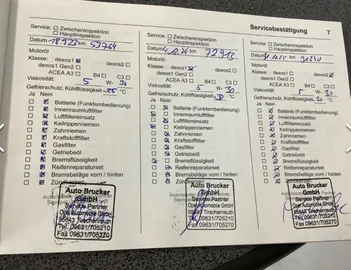 Servicebestätigung 7
Service: Zwischeninspektion
Hauptinspektion
Datum 53764
Motoröl
Klasse: dexos1 dexos2
dexos1 Gen2
ACEA A3 B4 C3
Viskosität: 5 W- 30
Gefrierschutz, Kühlflüssigkeit °C
Ja Nein
Batterie (Funkenbedienung)
Innenraumluftfilter
Luftfiltereinsatz
Keilrippenriemen
Zahnriemen
Kraftstofffilter
Gasfilter
Getriebeöl
Bremsflüssigkeit
Reifenreparaturset
Bremsbeläge vorn / hinten
Auto Brucker
GmbH
Service Partner
Opel Automobile GmbH
95643 Tirschenreuth
Tel. 09631/705210
Fax 09631/705270
Service: Zwischeninspektion
Hauptinspektion
Datum 72913
Motoröl
Klasse: dexos1 dexos2
dexos1 Gen2
ACEA A3 B4 C3
Viskosität: 5 W- 30
Gefrierschutz, Kühlflüssigkeit °C
Ja Nein
Batterie (Funkenbedienung)
Innenraumluftfilter
Luftfiltereinsatz
Keilrippenriemen
Zahnriemen
Kraftstofffilter
Gasfilter
Getriebeöl
Bremsflüssigkeit
Reifenreparaturset
Bremsbeläge vorn / hinten
Auto Brucker
GmbH
Service Partner
Opel Automobile GmbH
95643 Tirschenreuth
Tel. 09631/705210
Fax 09631/705270
Service: Zwischeninspektion
Hauptinspektion
Datum
Motoröl
Klasse: dexos1 dexos2
dexos1 Gen2
ACEA A3 B4 C3
Viskosität: W- 30
Gefrierschutz, Kühlflüssigkeit °C
Ja Nein
Batterie (Funkenbedienung)
Innenraumluftfilter
Luftfiltereinsatz
Keilrippenriemen
Zahnriemen
Kraftstofffilter
Gasfilter
Getriebeöl
Bremsflüssigkeit
Reifenreparaturset
Bremsbeläge vorn / hinten
Auto Brucker
GmbH
Service Partner
Opel Automobile GmbH
95643 Tirschenreuth
Tel. 09631/705210
Fax 09631/705270